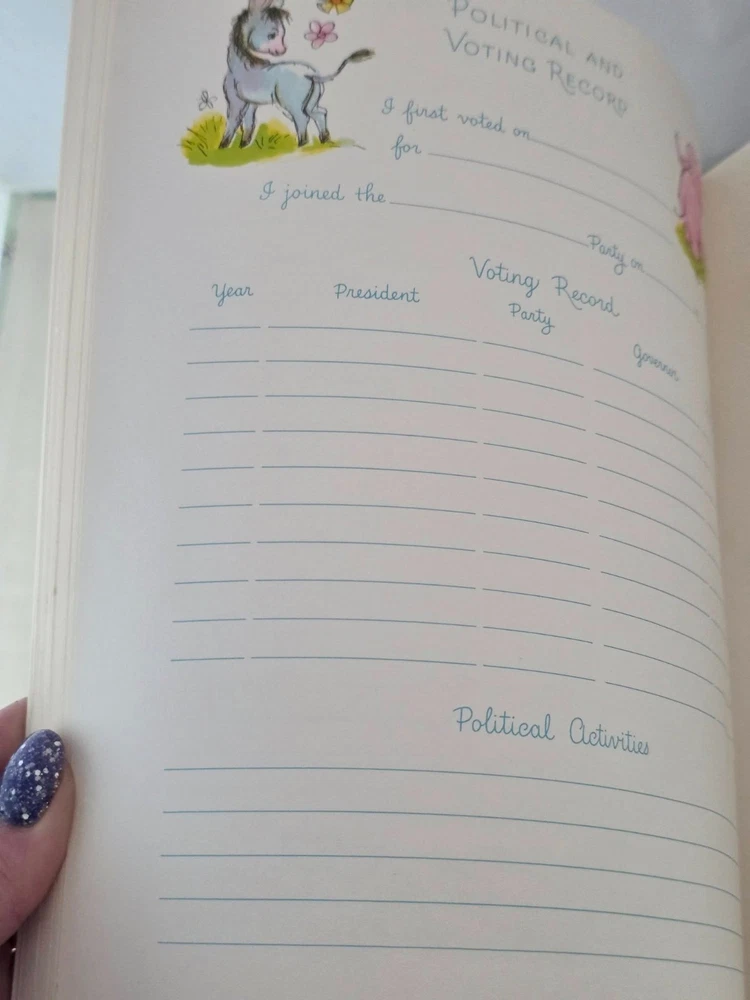 POLITICAL AND
VOTING RECORD
I first voted on
for
I joined the Party on
Voting Record
Year President Party Governor
Political Activities